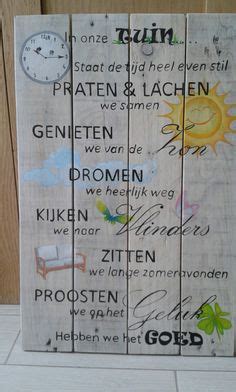 In onze TUIN.....
Staat de tijd heel even stil
PRATEN & LACHEN
we samen
GENIETEN
we van de Zon
DROMEN
we heerlijk weg
KIJKEN
we naar Vlinders
ZITTEN
we lange zomeravonden
PROOSTEN
we op het Geluk
Hebben we het GOED